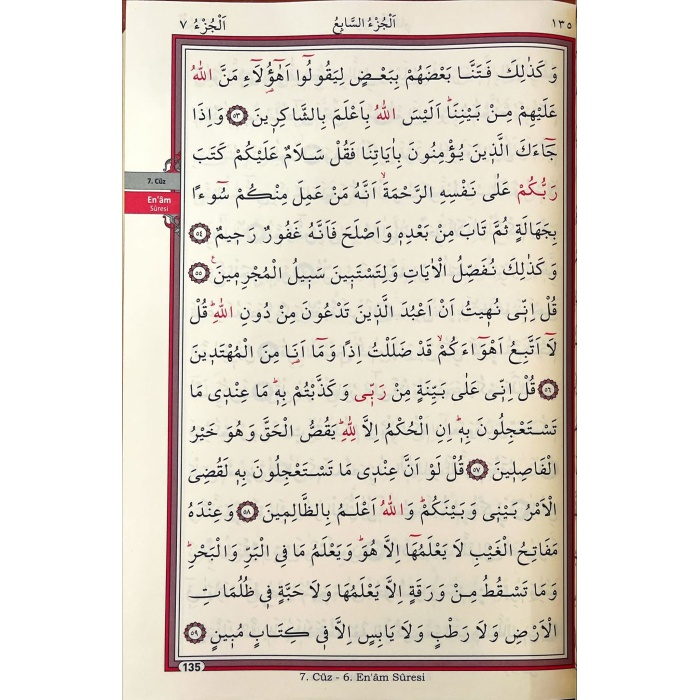 ١٣٥ اَلْجُزْءُ السَّابِعُ اَلْجُزْءُ ٧
وَ كَذٰلِكَ فَتَنَّا بَعْضَهُمْ بِبَعْضٍ لِيَقُولُٓوا اَهٰٓؤُ۬لَٓاءِ مَنَّ اللّٰهُ
عَلَيْهِمْ مِنْ بَيْنِنَاۜ اَلَيْسَ اللّٰهُ بِاَعْلَمَ بِالشَّاكِر۪ينَ ﴿٥٣﴾ وَاِذَا
جَٓاءَكَ الَّذ۪ينَ يُؤْمِنُونَ بِاٰيَاتِنَا فَقُلْ سَلَامٌ عَلَيْكُمْ كَتَبَ
رَبُّكُمْ عَلٰى نَفْسِهِ الرَّحْمَةَۙ اَنَّهُ مَنْ عَمِلَ مِنْكُمْ سُٓوءًا
بِجَهَالَةٍ ثُمَّ تَابَ مِنْ بَعْدِه۪ وَاَصْلَحَ فَاَنَّهُ غَفُورٌ رَح۪يمٌ ﴿٥٤﴾
وَ كَذٰلِكَ نُفَصِّلُ الْاٰيَاتِ وَلِتَسْتَب۪ينَ سَب۪يلُ الْمُجْرِم۪ينَ۟ ﴿٥٥﴾
قُلْ اِنّ۪ى نُه۪يتُ اَنْ اَعْبُدَ الَّذ۪ينَ تَدْعُونَ مِنْ دُونِ اللّٰهِۜ قُلْ
لَٓا اَتَّبِعُ اَهْوَٓاءَكُمْۙ قَدْ ضَلَلْتُ اِذًا وَمَٓا اَنَا۬ مِنَ الْمُهْتَد۪ينَ
﴿٥٦﴾ قُلْ اِنّ۪ى عَلٰى بَيِّنَةٍ مِنْ رَبّ۪ى وَ كَذَّبْتُمْ بِه۪ۜ مَا عِنْد۪ى مَا
تَسْتَعْجِلُونَ بِه۪ۜ اِنِ الْحُكْمُ اِلَّا لِلّٰهِۜ يَقُصُّ الْحَقَّ وَهُوَ خَيْرُ
الْفَاصِل۪ينَ ﴿٥٧﴾ قُلْ لَوْ اَنَّ عِنْد۪ى مَا تَسْتَعْجِلُونَ بِه۪ لَقُضِىَ
الْاَمْرُ بَيْن۪ى وَبَيْنَكُمْۜ وَاللّٰهُ اَعْلَمُ بِالظَّالِم۪ينَ ﴿٥٨﴾ وَعِنْدَهُ
مَفَاتِحُ الْغَيْبِ لَا يَعْلَمُهَٓا اِلَّا هُوَۜ وَيَعْلَمُ مَا فِى الْبَرِّ وَالْبَحْرِۜ
وَمَا تَسْقُطُ مِنْ وَرَقَةٍ اِلَّا يَعْلَمُهَا وَلَا حَبَّةٍ ف۪ى ظُلُمَاتِ
الْاَرْضِ وَلَا رَطْبٍ وَلَا يَابِسٍ اِلَّا ف۪ى كِتَابٍ مُب۪ينٍ ﴿٥٩﴾
7. Cüz
En'âm
Sûresi
135
7. Cüz - 6. En'âm Sûresi